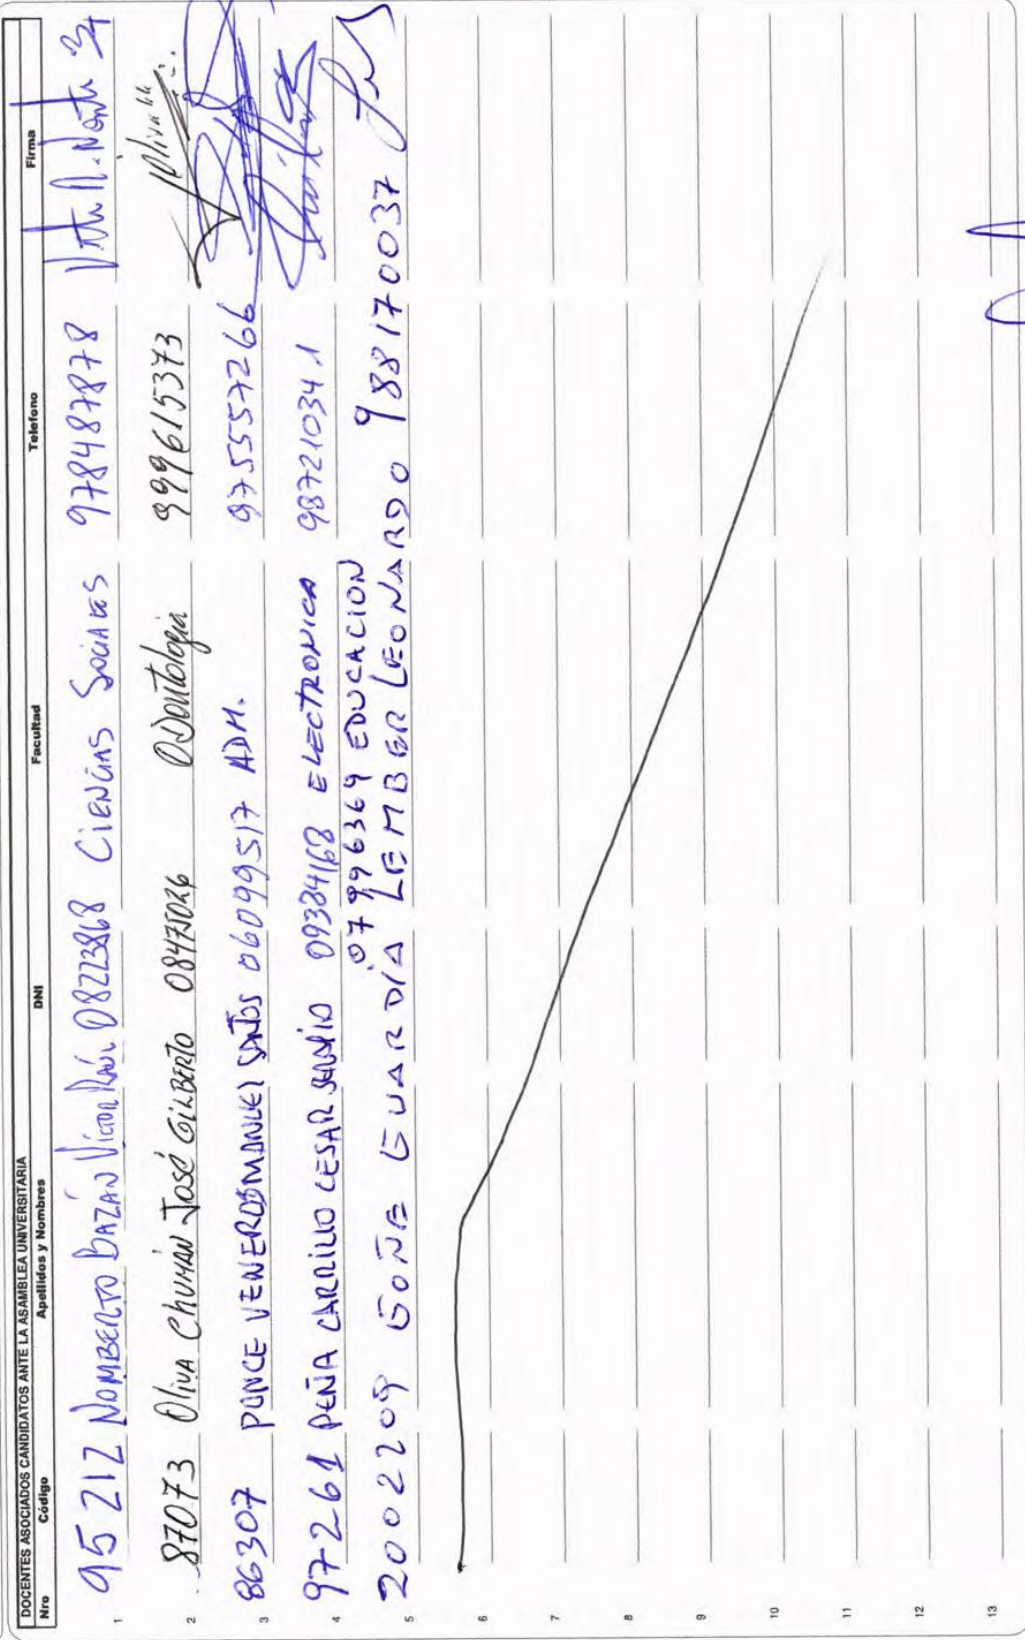 DOCENTES ASOCIADOS CANDIDATOS ANTE LA ASAMBLEA UNIVERSITARIA
Nro Código Apellidos y Nombres DNI Facultad Telefono Firma
1 95212 NOMBERTO BAZÁN Víctor Raúl 08223868 CIENCIAS SOCIALES 978487878
2 87073 OLIVA CHUMÁN JOSÉ GILBERTO 08475026 ODontología 999615373
3 86307 PONCE VENEROS MANUEL SANTOS 06099517 ADM. 975557266
4 97261 PEÑA CARRILLO CESAR 09384168 ELECTRONICA 987210341
07996369 EDUCACION
5 2002209 GOÑE GUARDÍA LEMBER LEONARDO 988170037
6
7
8
9
10
11
12
13